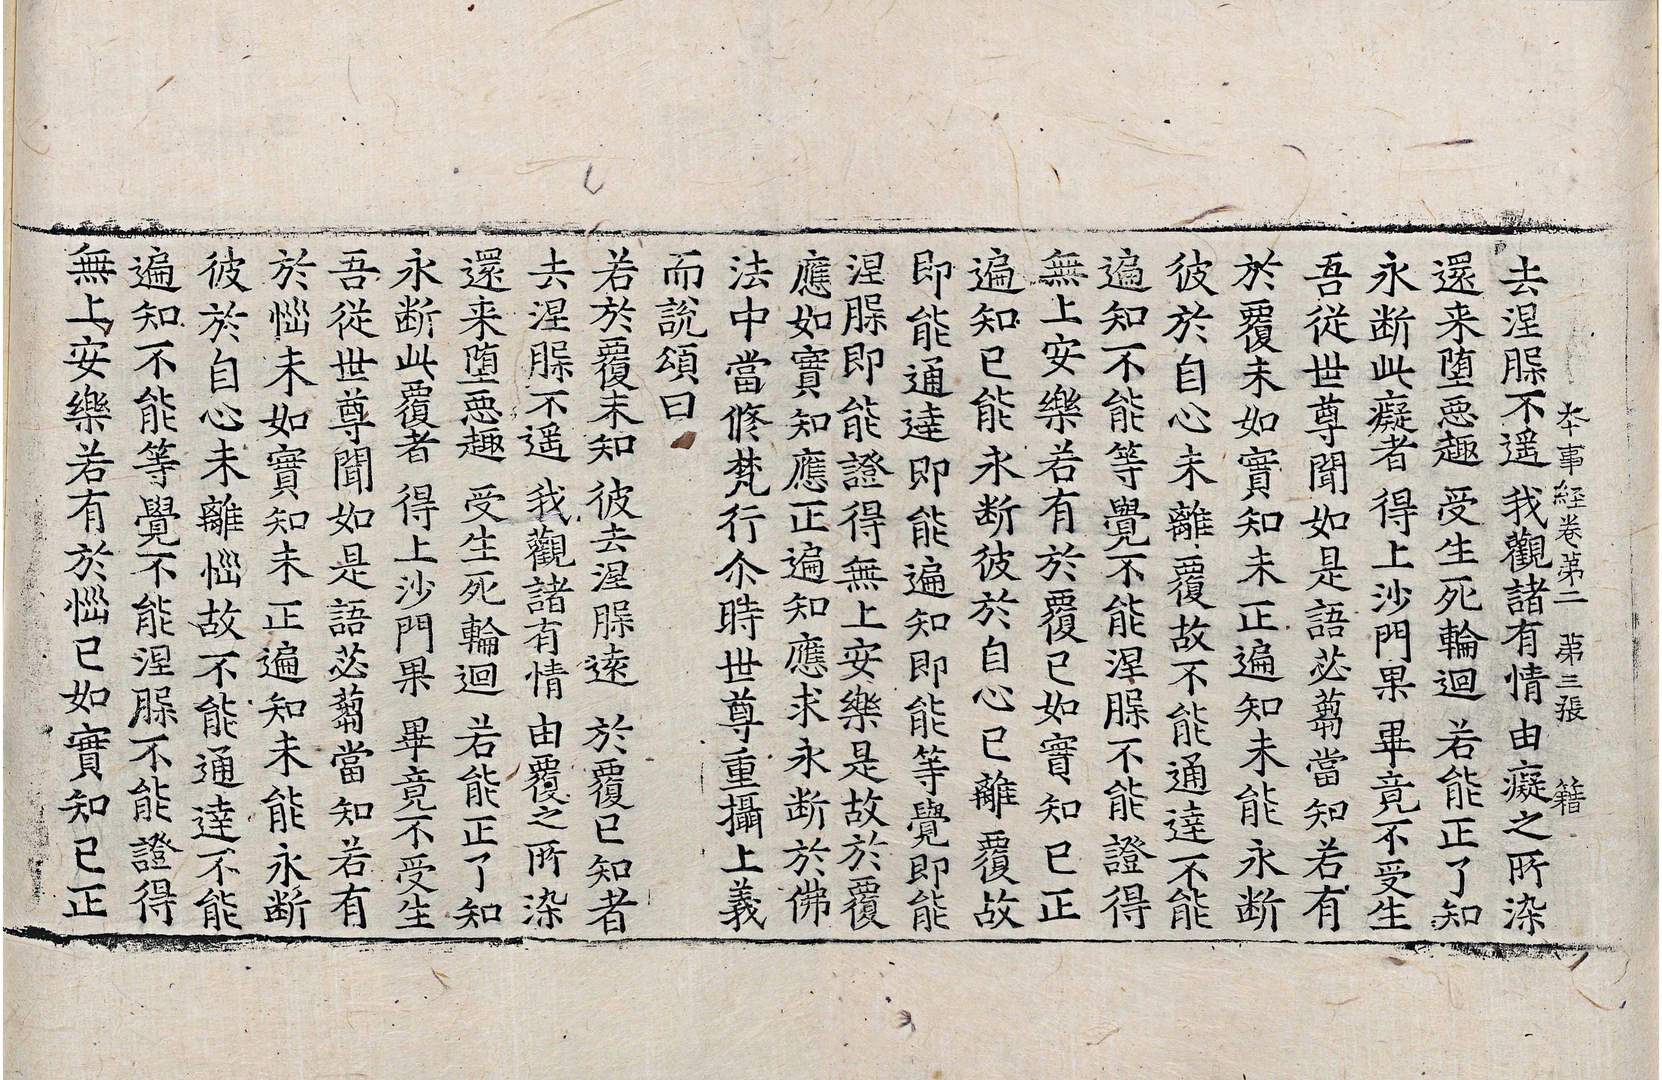 本事経卷苐二　苐三張　籍
去涅腺不遥　我觀諸有情　由癡之所染
還来墮惡趣　受生死輪迴　若能正了知
永断此癡者　得上沙門果　畢竟不受生
吾從世尊聞如是語苾蒭當知若有
於覆未如實知未正遍知未能永断
彼於自心未離覆故不能通達不能
遍知不能等覺不能涅腺不能證得
無上安樂若有於覆已如實知已正
遍知已能永断彼於自心已離覆故
即能通達即能遍知即能等覺即能
涅腺即能證得無上安樂是故於覆
應如實知應正遍知應求永断於佛
法中當修梵行尒時世尊重攝上義
而說頌曰
若於覆未知　彼去涅腺遠　於覆已知者
去涅腺不遥　我觀諸有情　由覆之所染
還来墮惡趣　受生死輪迴　若能正了知
永断此覆者　得上沙門果　畢竟不受生
吾從世尊聞如是語苾蒭當知若有
於惱未如實知未正遍知未能永断
彼於自心未離惱故不能通達不能
遍知不能等覺不能涅腺不能證得
無上安樂若有於惱已如實知已正